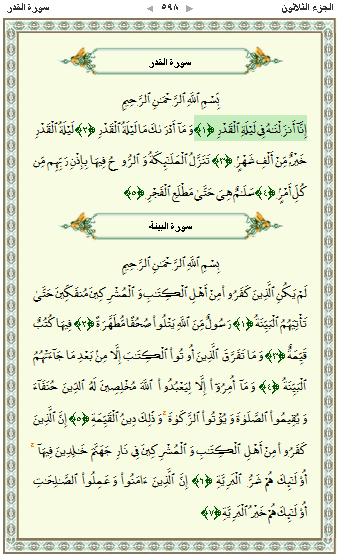 الجزء الثلاثون ٥٩٨ سورة القدر
سورة القدر
بِسْمِ ٱللَّهِ ٱلرَّحْمَٰنِ ٱلرَّحِيمِ
إِنَّآ أَنزَلْنَٰهُ فِى لَيْلَةِ ٱلْقَدْرِ ﴿١﴾ وَمَآ أَدْرَىٰكَ مَا لَيْلَةُ ٱلْقَدْرِ ﴿٢﴾ لَيْلَةُ ٱلْقَدْرِ
خَيْرٌ مِّنْ أَلْفِ شَهْرٍ ﴿٣﴾ تَنَزَّلُ ٱلْمَلَٰٓئِكَةُ وَٱلرُّوحُ فِيهَا بِإِذْنِ رَبِّهِم مِّن
كُلِّ أَمْرٍ ﴿٤﴾ سَلَٰمٌ هِىَ حَتَّىٰ مَطْلَعِ ٱلْفَجْرِ ﴿٥﴾
سورة البينة
بِسْمِ ٱللَّهِ ٱلرَّحْمَٰنِ ٱلرَّحِيمِ
لَمْ يَكُنِ ٱلَّذِينَ كَفَرُوا۟ مِنْ أَهْلِ ٱلْكِتَٰبِ وَٱلْمُشْرِكِينَ مُنفَكِّينَ حَتَّىٰ
تَأْتِيَهُمُ ٱلْبَيِّنَةُ ﴿١﴾ رَسُولٌ مِّنَ ٱللَّهِ يَتْلُوا۟ صُحُفًا مُّطَهَّرَةً ﴿٢﴾ فِيهَا كُتُبٌ
قَيِّمَةٌ ﴿٣﴾ وَمَا تَفَرَّقَ ٱلَّذِينَ أُوتُوا۟ ٱلْكِتَٰبَ إِلَّا مِنۢ بَعْدِ مَا جَآءَتْهُمُ
ٱلْبَيِّنَةُ ﴿٤﴾ وَمَآ أُمِرُوٓا۟ إِلَّا لِيَعْبُدُوا۟ ٱللَّهَ مُخْلِصِينَ لَهُ ٱلدِّينَ حُنَفَآءَ
وَيُقِيمُوا۟ ٱلصَّلَوٰةَ وَيُؤْتُوا۟ ٱلزَّكَوٰةَ ۚ وَذَٰلِكَ دِينُ ٱلْقَيِّمَةِ ﴿٥﴾ إِنَّ ٱلَّذِينَ
كَفَرُوا۟ مِنْ أَهْلِ ٱلْكِتَٰبِ وَٱلْمُشْرِكِينَ فِى نَارِ جَهَنَّمَ خَٰلِدِينَ فِيهَآ ۚ
أُو۟لَٰٓئِكَ هُمْ شَرُّ ٱلْبَرِيَّةِ ﴿٦﴾ إِنَّ ٱلَّذِينَ ءَامَنُوا۟ وَعَمِلُوا۟ ٱلصَّٰلِحَٰتِ
أُو۟لَٰٓئِكَ هُمْ خَيْرُ ٱلْبَرِيَّةِ ﴿٧﴾